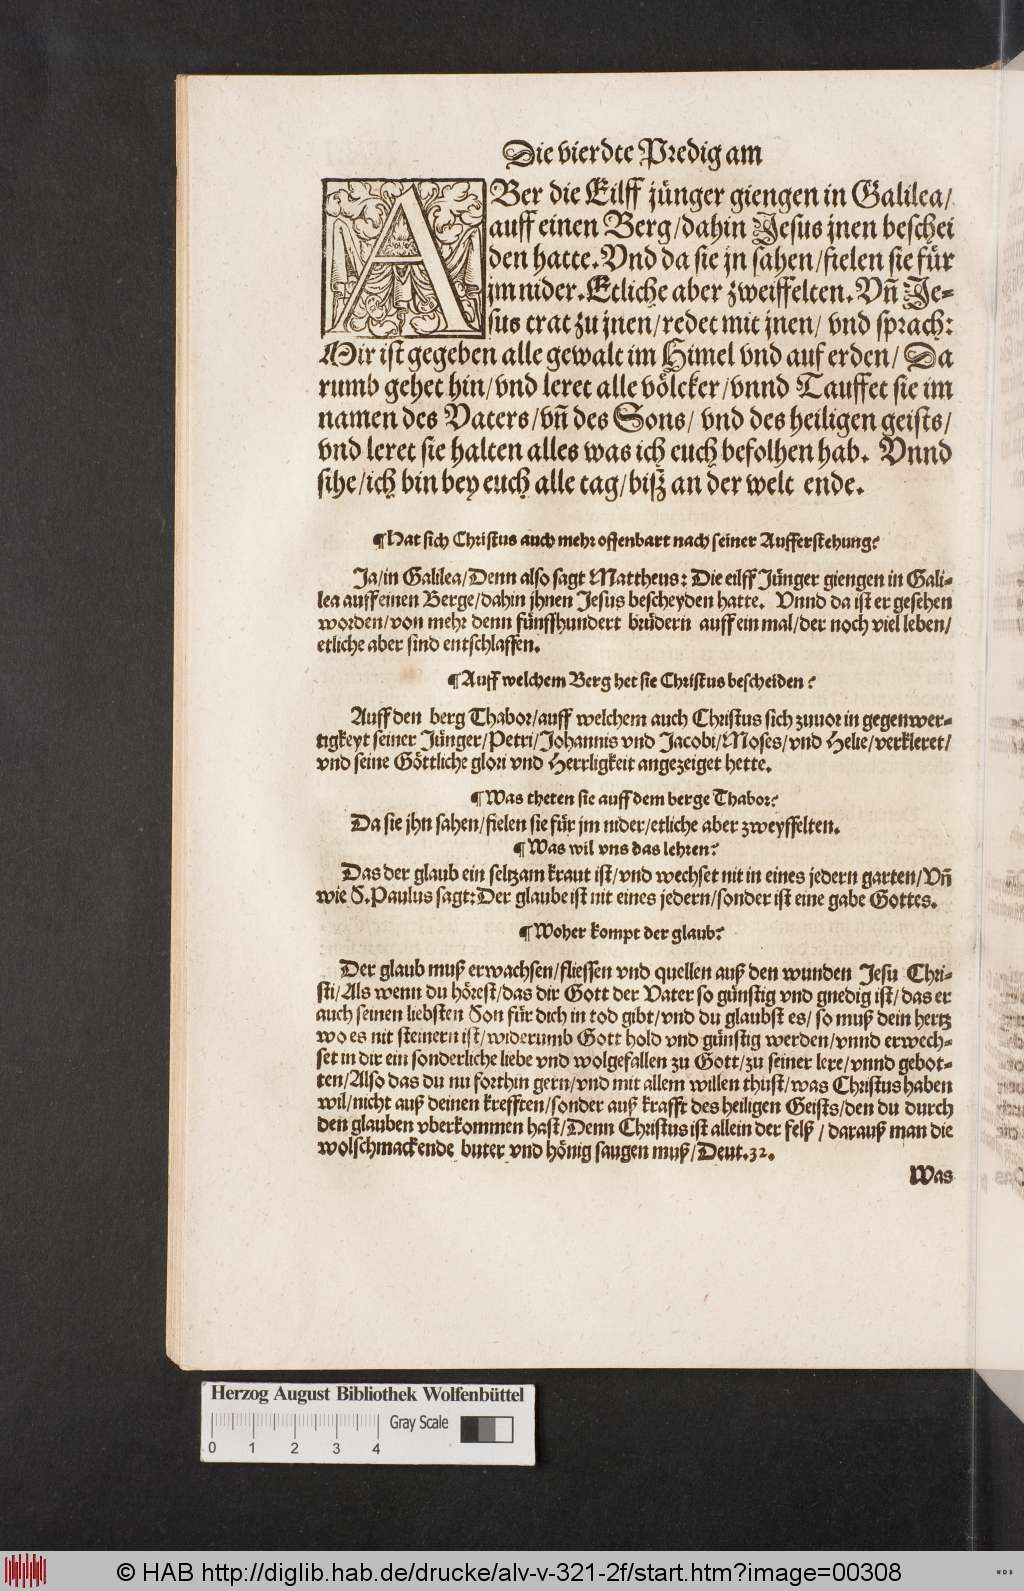 Die vierdte Predig am
ABer die Eilff jünger giengen in Galilea/
auff einen Berg/dahin Jesus jnen beschei
den hatte. Vnd da sie jn sahen/fielen sie für
jm nider. Etliche aber zweiffelten. Vñ Je-
sus trat zu jnen/redet mit jnen/ vnd sprach:
Mir ist gegeben alle gewalt im Himel vnd auf erden/ Da
rumb gehet hin/vnd leret alle völcker/vnnd Tauffet sie im
namen des Vaters/vñ des Sons/ vnd des heiligen geists/
vnd leret sie halten alles was ich euch befolhen hab. Vnnd
sihe/ich bin bey euch alle tag/biß an der welt ende.
¶Hat sich Christus auch mehr offenbart nach seiner Aufferstehung?
Ja/in Galilea/Denn also sagt Mattheus: Die eilff Jünger giengen in Gali-
lea auff einen Berge/dahin jhnen Jesus bescheyden hatte. Vnnd da ist er gesehen
worden/von mehr denn fünffhundert brüdern auff ein mal/der noch viel leben/
etliche aber sind entschlaffen.
¶Auff welchem Berg het sie Christus bescheiden?
Auff den berg Thabor/auff welchem auch Christus sich zuuor in gegenwer-
tigkeyt seiner Jünger/Petri/Johannis vnd Jacobi/Moses/vnd Helie/verkleret/
vnd seine Göttliche glori vnd Herrligkeit angezeiget hette.
¶Was theten sie auff dem berge Thabor?
Da sie jhn sahen/fielen sie für jm nider/etliche aber zweyffelten.
¶Was wil vns das lehren?
Das der glaub ein seltzam kraut ist/vnd wechset nit in eines jedern garten/Vñ
wie S. Paulus sagt: Der glaube ist nit eines jedern/sonder ist eine gabe Gottes.
¶Woher kompt der glaub?
Der glaub muß erwachsen/fliessen vnd quellen auß den wunden Jesu Chri-
sti/Als wenn du hörest/das dir Gott der Vater so günstig vnd gnedig ist/das er
auch seinen liebsten Son für dich in tod gibt/vnd du glaubst es/ so muß dein hertz
wo es nit steinern ist/widerumb Gott hold vnd günstig werden/vnnd erwech-
set in dir ein sonderliche liebe vnd wolgefallen zu Gott/zu seiner lere/vnnd gebot-
ten/Also das du nu forthin gern/vnd mit allem willen thust/was Christus haben
wil/nicht auß deinen krefften/sonder auß krafft des heiligen Geists/den du durch
den glauben vberkommen hast/Denn Christus ist allein der felß/darauß man die
wolschmackende buter vnd hönig saugen muß/Deut.32.
Was
Herzog August Bibliothek Wolfenbüttel
Gray Scale
0 1 2 3 4
© HAB http://diglib.hab.de/drucke/alv-v-321-2f/start.htm?image=00308